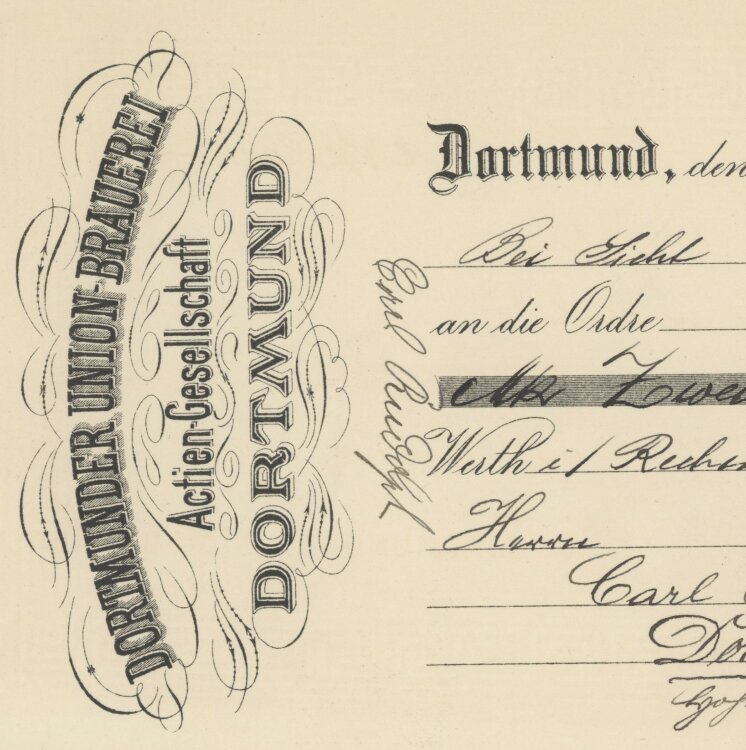 DORTMUNDER UNION-BRAUEREI
Actien-Gesellschaft
DORTMUND
Dortmund, den
Bei Sicht
an die Ordre
Mk Zwei
Werth i/ Rechn
Herrn
Carl
Dor